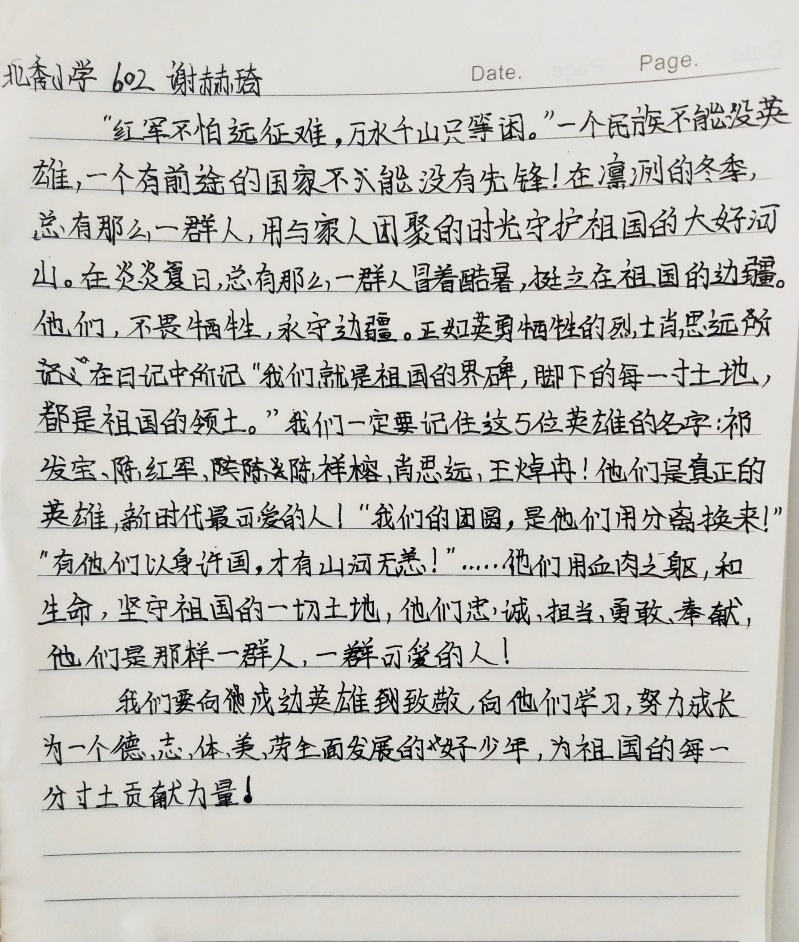 北秀小学 602 谢赫琦 Date. Page.
“红军不怕远征难，万水千山只等困。”一个民族不能没英
雄，一个有前途的国家不能没有先锋！在凛冽的冬季，
总有那么一群人，用与家人团聚的时光守护祖国的大好河
山。在炎炎夏日，总有那么一群人冒着酷暑，挺立在祖国的边疆。
他们，不畏牺牲，永守边疆。正如英勇牺牲的烈士肖思远所
记：在日记中所记“我们就是祖国的界碑，脚下的每一寸土地，
都是祖国的领土。”我们一定要记住这5位英雄的名字：祁
发宝、陈红军、陈祥榕、肖思远、王焯冉！他们是真正的
英雄，新时代最可爱的人！“我们的团圆，是他们用分离换来！”
“有他们以身许国，才有山河无恙！”……他们用血肉之躯，和
生命，坚守祖国的一切土地，他们忠诚、担当、勇敢、奉献，
他们是那样一群人，一群可爱的人！
我们要向戍边英雄致敬，向他们学习，努力成长
为一个德、志、体、美、劳全面发展的好少年，为祖国的每一
分寸土贡献力量！